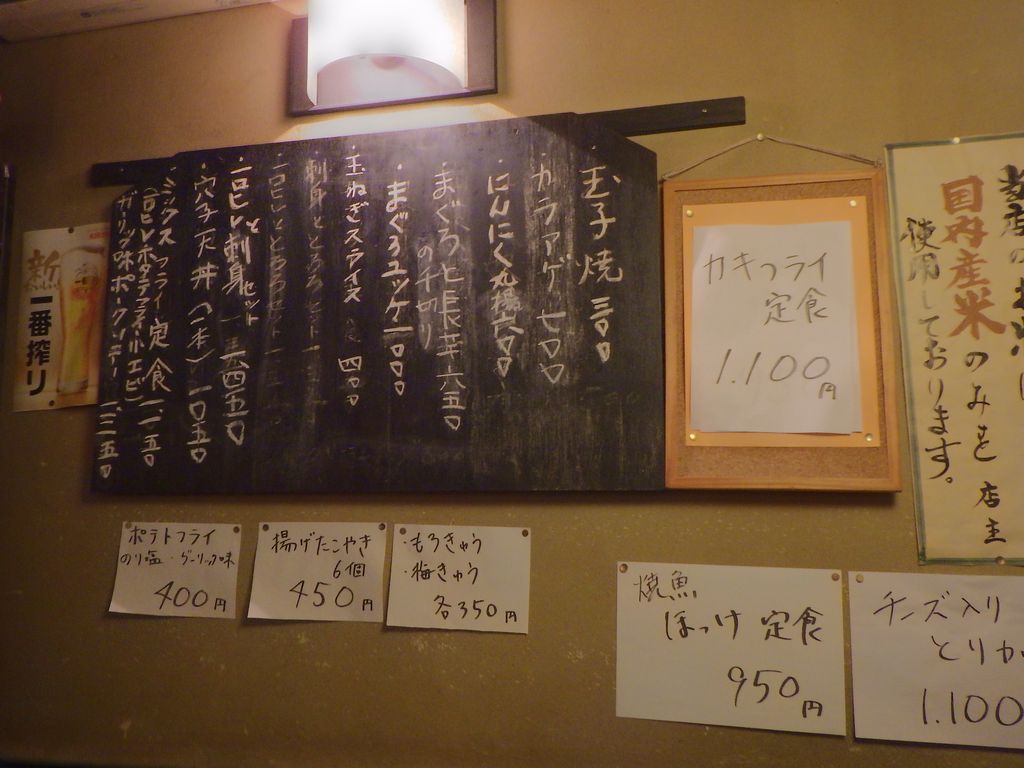 玉子焼 三〇〇
カラアゲ 七〇〇
にんにく丸揚 六〇〇
まぐろと長芋 六五〇
の千切り
・まぐろユッケ 一〇〇〇
・玉ねぎスライス 四〇〇
刺身ととろろ
一口ヒレと刺身セット 一六四五〇
・穴子天丼(一本) 一〇五〇
・ミックスフライ定食 一一五〇
(一口ヒレ・ホタテフライ・小エビ)
ガーリック味ポークソテー 一二五〇
カキフライ
定食
1.100円
国内産米のみを
使用しております。
店主
新
一番搾り
ポテトフライ
のり塩・ガーリック味
400円
揚げたこやき
6個
450円
・もろきゅう
・梅きゅう
各350円
焼魚
ほっけ 定食
950円
チーズ入り
とりか
1.100